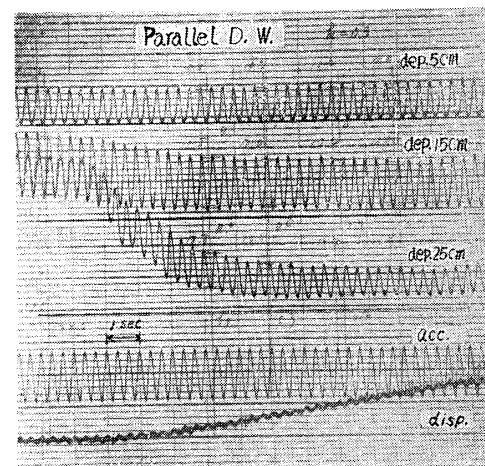 Parallel D. W.
dep.5cm
dep.15cm
dep.25cm
1 sec
acc.
disp.